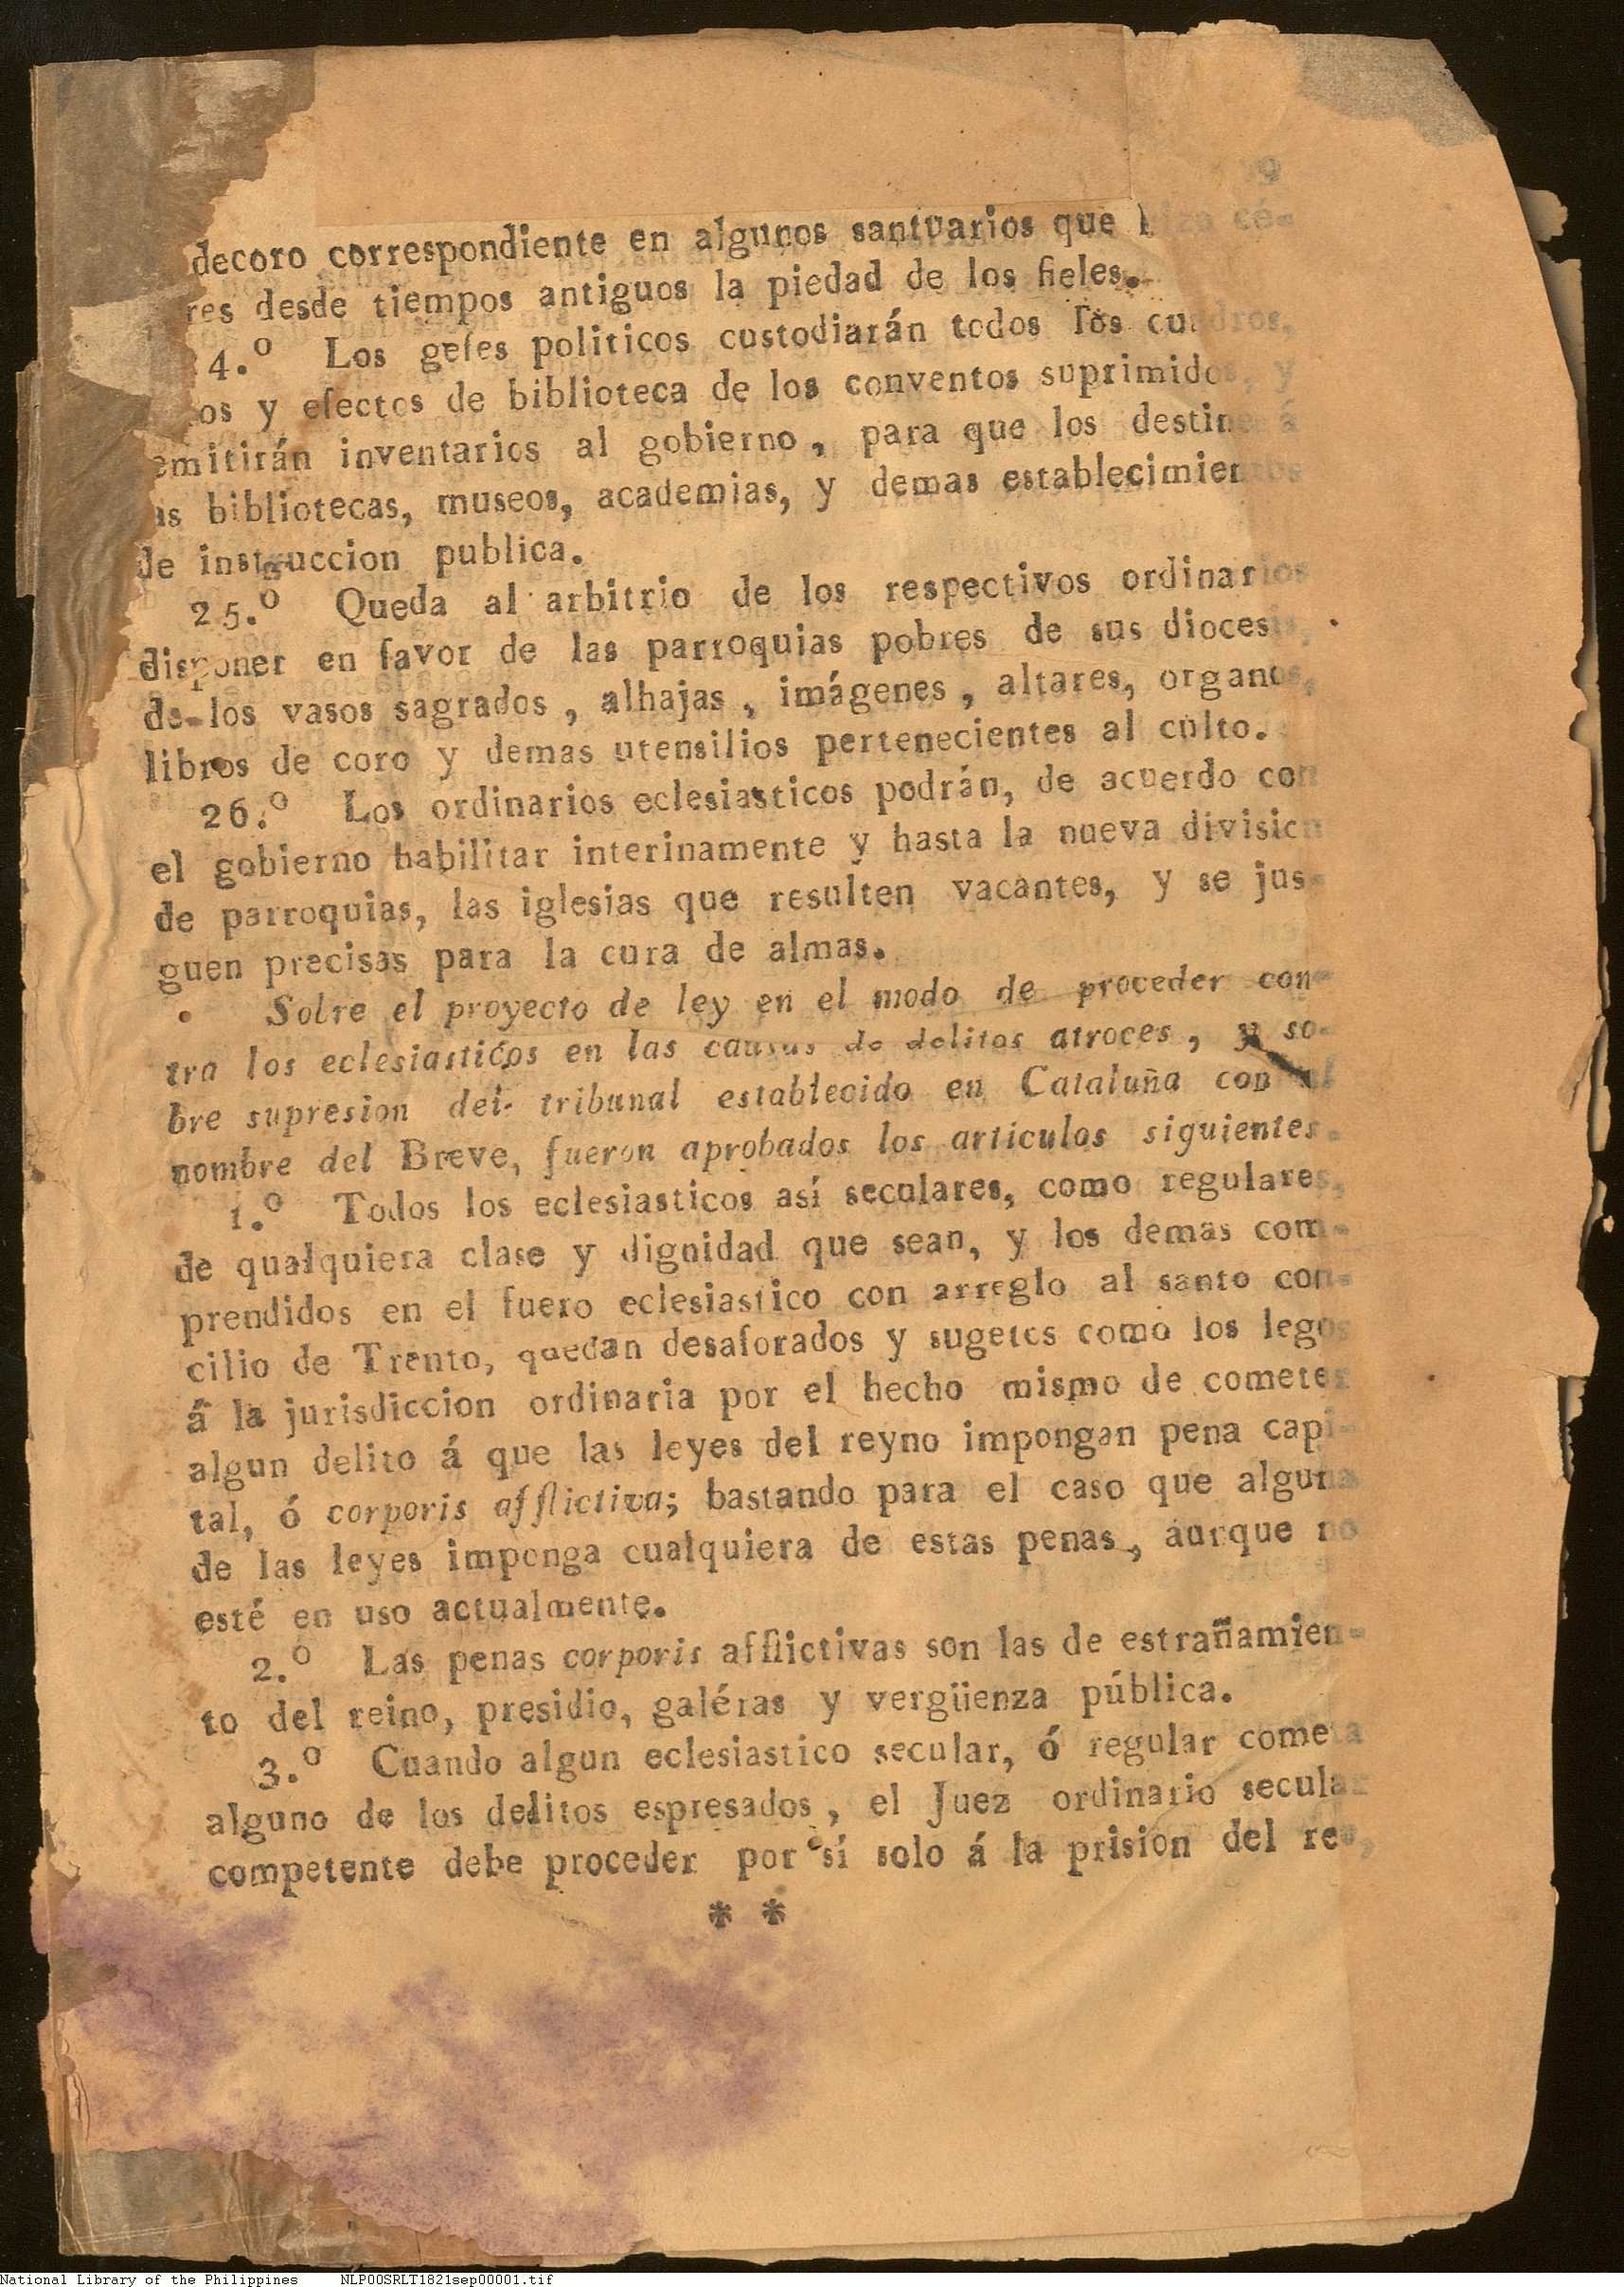 9
decoro correspondiente en algunos santuarios que hizo cé-
res desde tiempos antiguos la piedad de los fieles.
24.º Los gefes politicos custodiarán todos los cuadros,
os y efectos de biblioteca de los conventos suprimidos, y
emitirán inventarios al gobierno, para que los destine á
as bibliotecas, museos, academias, y demas establecimientos
de instruccion publica.
25.º Queda al arbitrio de los respectivos ordinarios
disponer en favor de las parroquias pobres de sus diocesis,
de los vasos sagrados, alhajas, imágenes, altares, organos,
libros de coro y demas utensilios pertenecientes al culto.
26.º Los ordinarios eclesiasticos podrán, de acuerdo con
el gobierno habilitar interinamente y hasta la nueva division
de parroquias, las iglesias que resulten vacantes, y se jus-
guen precisas para la cura de almas.
Sobre el proyecto de ley en el modo de proceder con-
tra los eclesiasticos en las causas de delitos atroces, y so-
bre supresion del tribunal establecido en Cataluña con el
nombre del Breve, fueron aprobados los articulos siguientes.
1.º Todos los eclesiasticos así seculares, como regulares,
de qualquiera clase y dignidad que sean, y los demas com-
prendidos en el fuero eclesiastico con arreglo al santo con-
cilio de Trento, quedan desaforados y sugetos como los legos
á la jurisdiccion ordinaria por el hecho mismo de cometer
algun delito á que las leyes del reyno impongan pena capi-
tal, ó corporis afflictiva; bastando para el caso que alguna
de las leyes imponga cualquiera de estas penas, aunque no
esté en uso actualmente.
2.º Las penas corporis afflictivas son las de estrañamien-
to del reino, presidio, galéras y vergüenza pública.
3.º Cuando algun eclesiastico secular, ó regular cometa
alguno de los delitos espresados, el Juez ordinario secular
competente debe proceder por sí solo á la prision del reo,
* *
National Library of the Philippines NLP00SRLT1821sep00001.tif